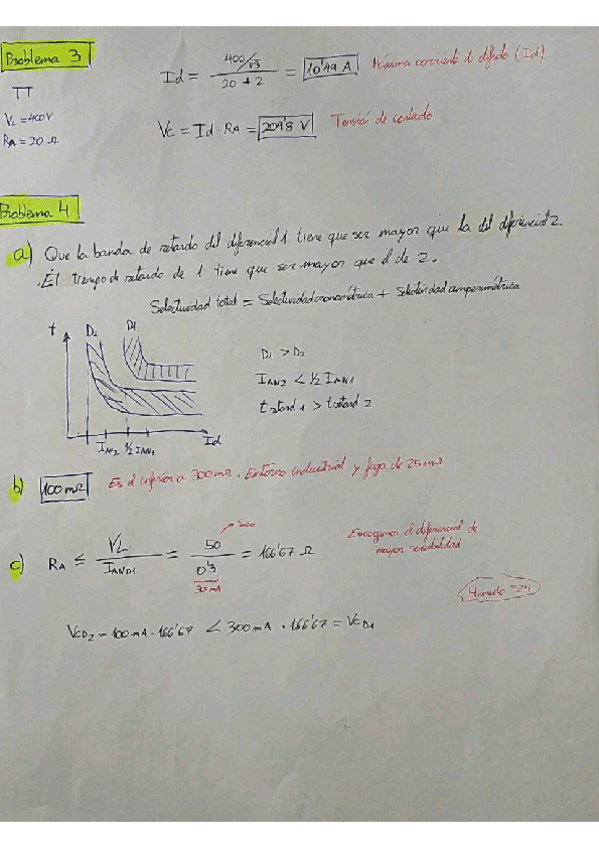 Problema 3
TT
VL = 400V
RA = 20 Ω
Id = (400/√3) / (20 + 2) = 10'49 A Máxima corriente de defecto (Id)
Vc = Id · RA = 209'8 V Tensión de contacto
Problema 4
a) Que la banda de retardo del diferencial 1 tiene que ser mayor que la del diferencial 2.
. El tiempo de retardo de 1 tiene que ser mayor que el de 2.
Selectividad total = Selectividad cronométrica + Selectividad amperimétrica
t D2 D1
D1 > D2
IΔN2 < 1/2 IΔN1
t retard 1 > t retard 2
IΔN2 1/2 IΔN1 Id
b) 100 mΩ Es el inferior a 300 mΩ. Entorno industrial y fuga de 25 mΩ
c) RA ≤ VL / IΔND1 = 50 / 0'3 = 166'67 Ω
Seco
300 mA
Escogemos el diferencial de
mayor sensibilidad
Humedo = 24
VCD2 = 100 mA · 166'67 < 300 mA · 166'67 = VCD1